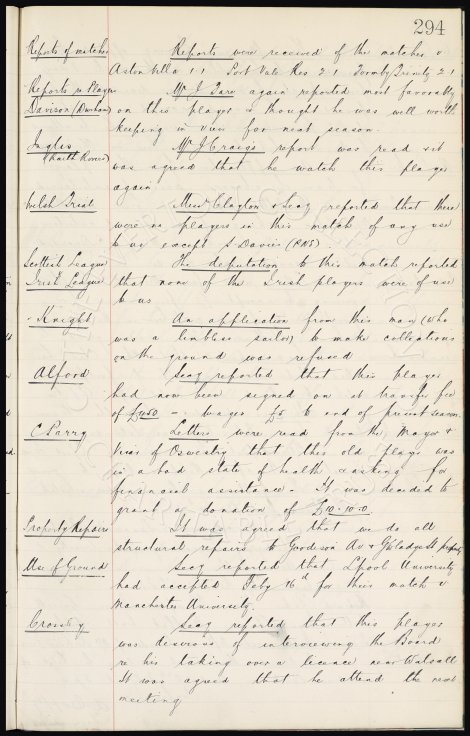 294
Reports of matches Reports were received of the matches v
Aston Villa 1.1 Port Vale Res 2.1 Formby 2.1
Reports re Players Mr J. again reported most favorably
Davison (Durham) on this player & thought he was well worth
keeping in view for next season.
Inglis Mr J Craig's report was read & it
(Raith Rovers) was agreed that he watch this player
again
Welsh Trial Messrs Clayton & Secy reported that there
were no players in this match of any use
to us except S Davies (PNE)
Scottish League The deputation to this match reported
Irish League that none of the Irish players were of use
to us
Knight An application from this man (who
was a limbless sailor) to make collections
on the ground was refused
Alford Secy reported that this player
had now been signed on at transfer fee
of wages £5 to end of present season.
C Parry Letters were read from the Mayor &
Vicar of Oswestry that this old player was
in a bad state of health & asking for
financial assistance. It was decided to
grant a donation of £10-10-0
Property Repairs It was agreed that we do all
structural repairs to Goodison Av & Gwladys St property
Use of Ground Secy reported that Lpool University
had accepted Feby 16th for their match v
Manchester University.
Crossley Secy reported that this player
was desirous of interviewing the Board
re his taking over a licence near Walsall
It was agreed that he attend the next
meeting